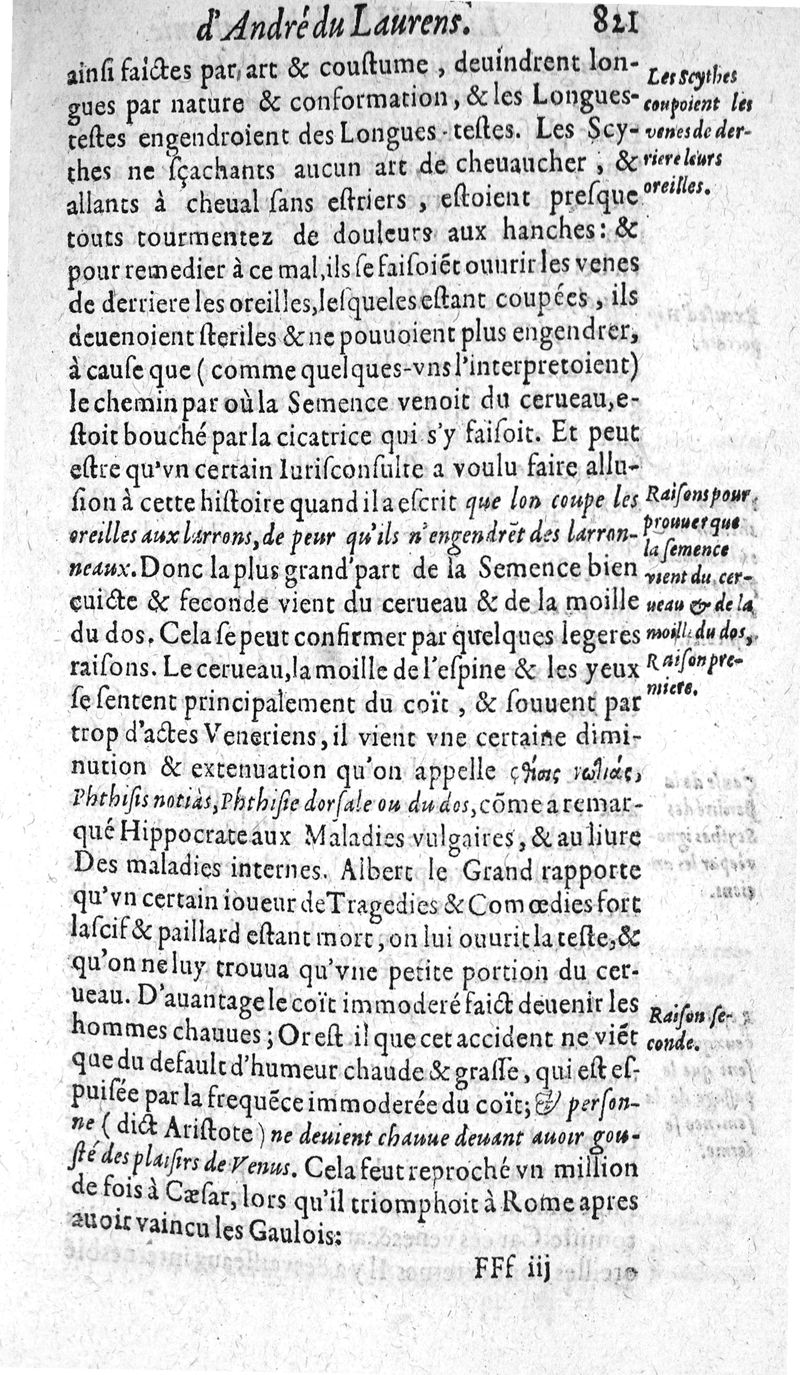 d'André du Laurens. 821
ainſi faictes par art & couſtume, deuindrent lon-
gues par nature & conformation, & les Longues-
teſtes engendroient des Longues-teſtes. Les Scy-
thes ne ſçachants aucun art de cheuaucher, &
allants à cheual ſans eſtriers, eſtoient preſque
touts tourmentez de douleurs aux hanches: &
pour remedier à ce mal, ils ſe faiſoiẽt ouurir les venes
de derriere les oreilles, leſqueles eſtant coupées, ils
deuenoient ſteriles & ne pouuoient plus engendrer,
à cauſe que (comme quelques-vns l'interpretoient)
le chemin par où la Semence venoit du cerueau, e-
ſtoit bouché par la cicatrice qui s'y faiſoit. Et peut
eſtre qu'vn certain Iuriſconſulte a voulu faire allu-
ſion à cette hiſtoire quand il a eſcrit que lon coupe les
oreilles aux larrons, de peur qu'ils n'engendrẽt des larron-
neaux. Donc la plus grand' part de la Semence bien
cuicte & feconde vient du cerueau & de la moille
du dos. Cela ſe peut confirmer par quelques legeres
raiſons. Le cerueau, la moille de l'eſpine & les yeux
ſe ſentent principalement du coït, & ſouuent par
trop d'actes Veneriens, il vient vne certaine dimi-
nution & extenuation qu'on appelle
Phthiſis notiàs, Phthiſie dorſale ou du dos, cõme a remar-
qué Hippocrate aux Maladies vulgaires, & au liure
Des maladies internes. Albert le Grand rapporte
qu'vn certain ioueur de Tragedies & Comœdies fort
laſcif & paillard eſtant mort, on lui ouurit la teſte, &
qu'on ne luy trouua qu'vne petite portion du cer-
ueau. D'auantage le coït immoderé faict deuenir les
hommes chauues; Or eſt il que cet accident ne viẽt
que du default d'humeur chaude & graſſe, qui eſt eſ-
puiſée par la frequẽce immoderée du coït; & perſon-
ne (dict Ariſtote) ne deuient chauue deuant auoir gou-
ſté des plaiſirs de Venus. Cela feut reproché vn million
de fois à Cæſar, lors qu'il triomphoit à Rome apres
auoir vaincu les Gaulois:
FFf iij
Les Scythes
coupoient les
venes de der-
riere leurs
oreilles.
Raiſons pour
prouuer que
la ſemence
vient du cer-
ueau & de la
moille du dos,
Raiſon pre-
miere.
Raiſon ſe-
conde.